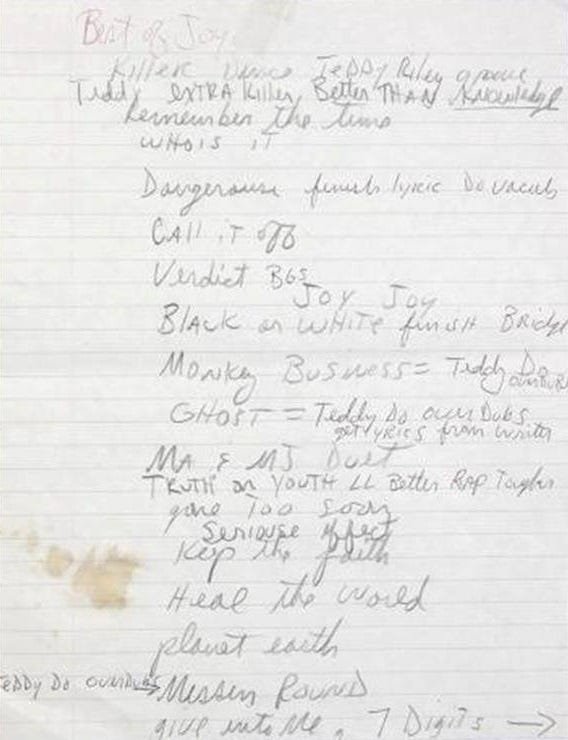 Best of Joy
Killer Dance Teddy Riley groove
Teddy EXTRA Killer, Better THAN Knowledge
Remember the time
WHO is it
Dangerouse finish lyric Do vocals
CAll iT off
Verdict BGS
Joy Joy
BlAck or WHiTe finish Bridge
Monkey Business = Teddy Do
ovrDubs
GHOST = Teddy Do ovurDubs
get lyrics from writer
MA & MJ Duet
TRUTH or YOUTH LL Better RAP Tougher
gone Too soon
Seriouse effect
Keep the faith
Heal the world
planet earth
Teddy Do ovurDubs → Messin Round
give into Me, 7 Digits →